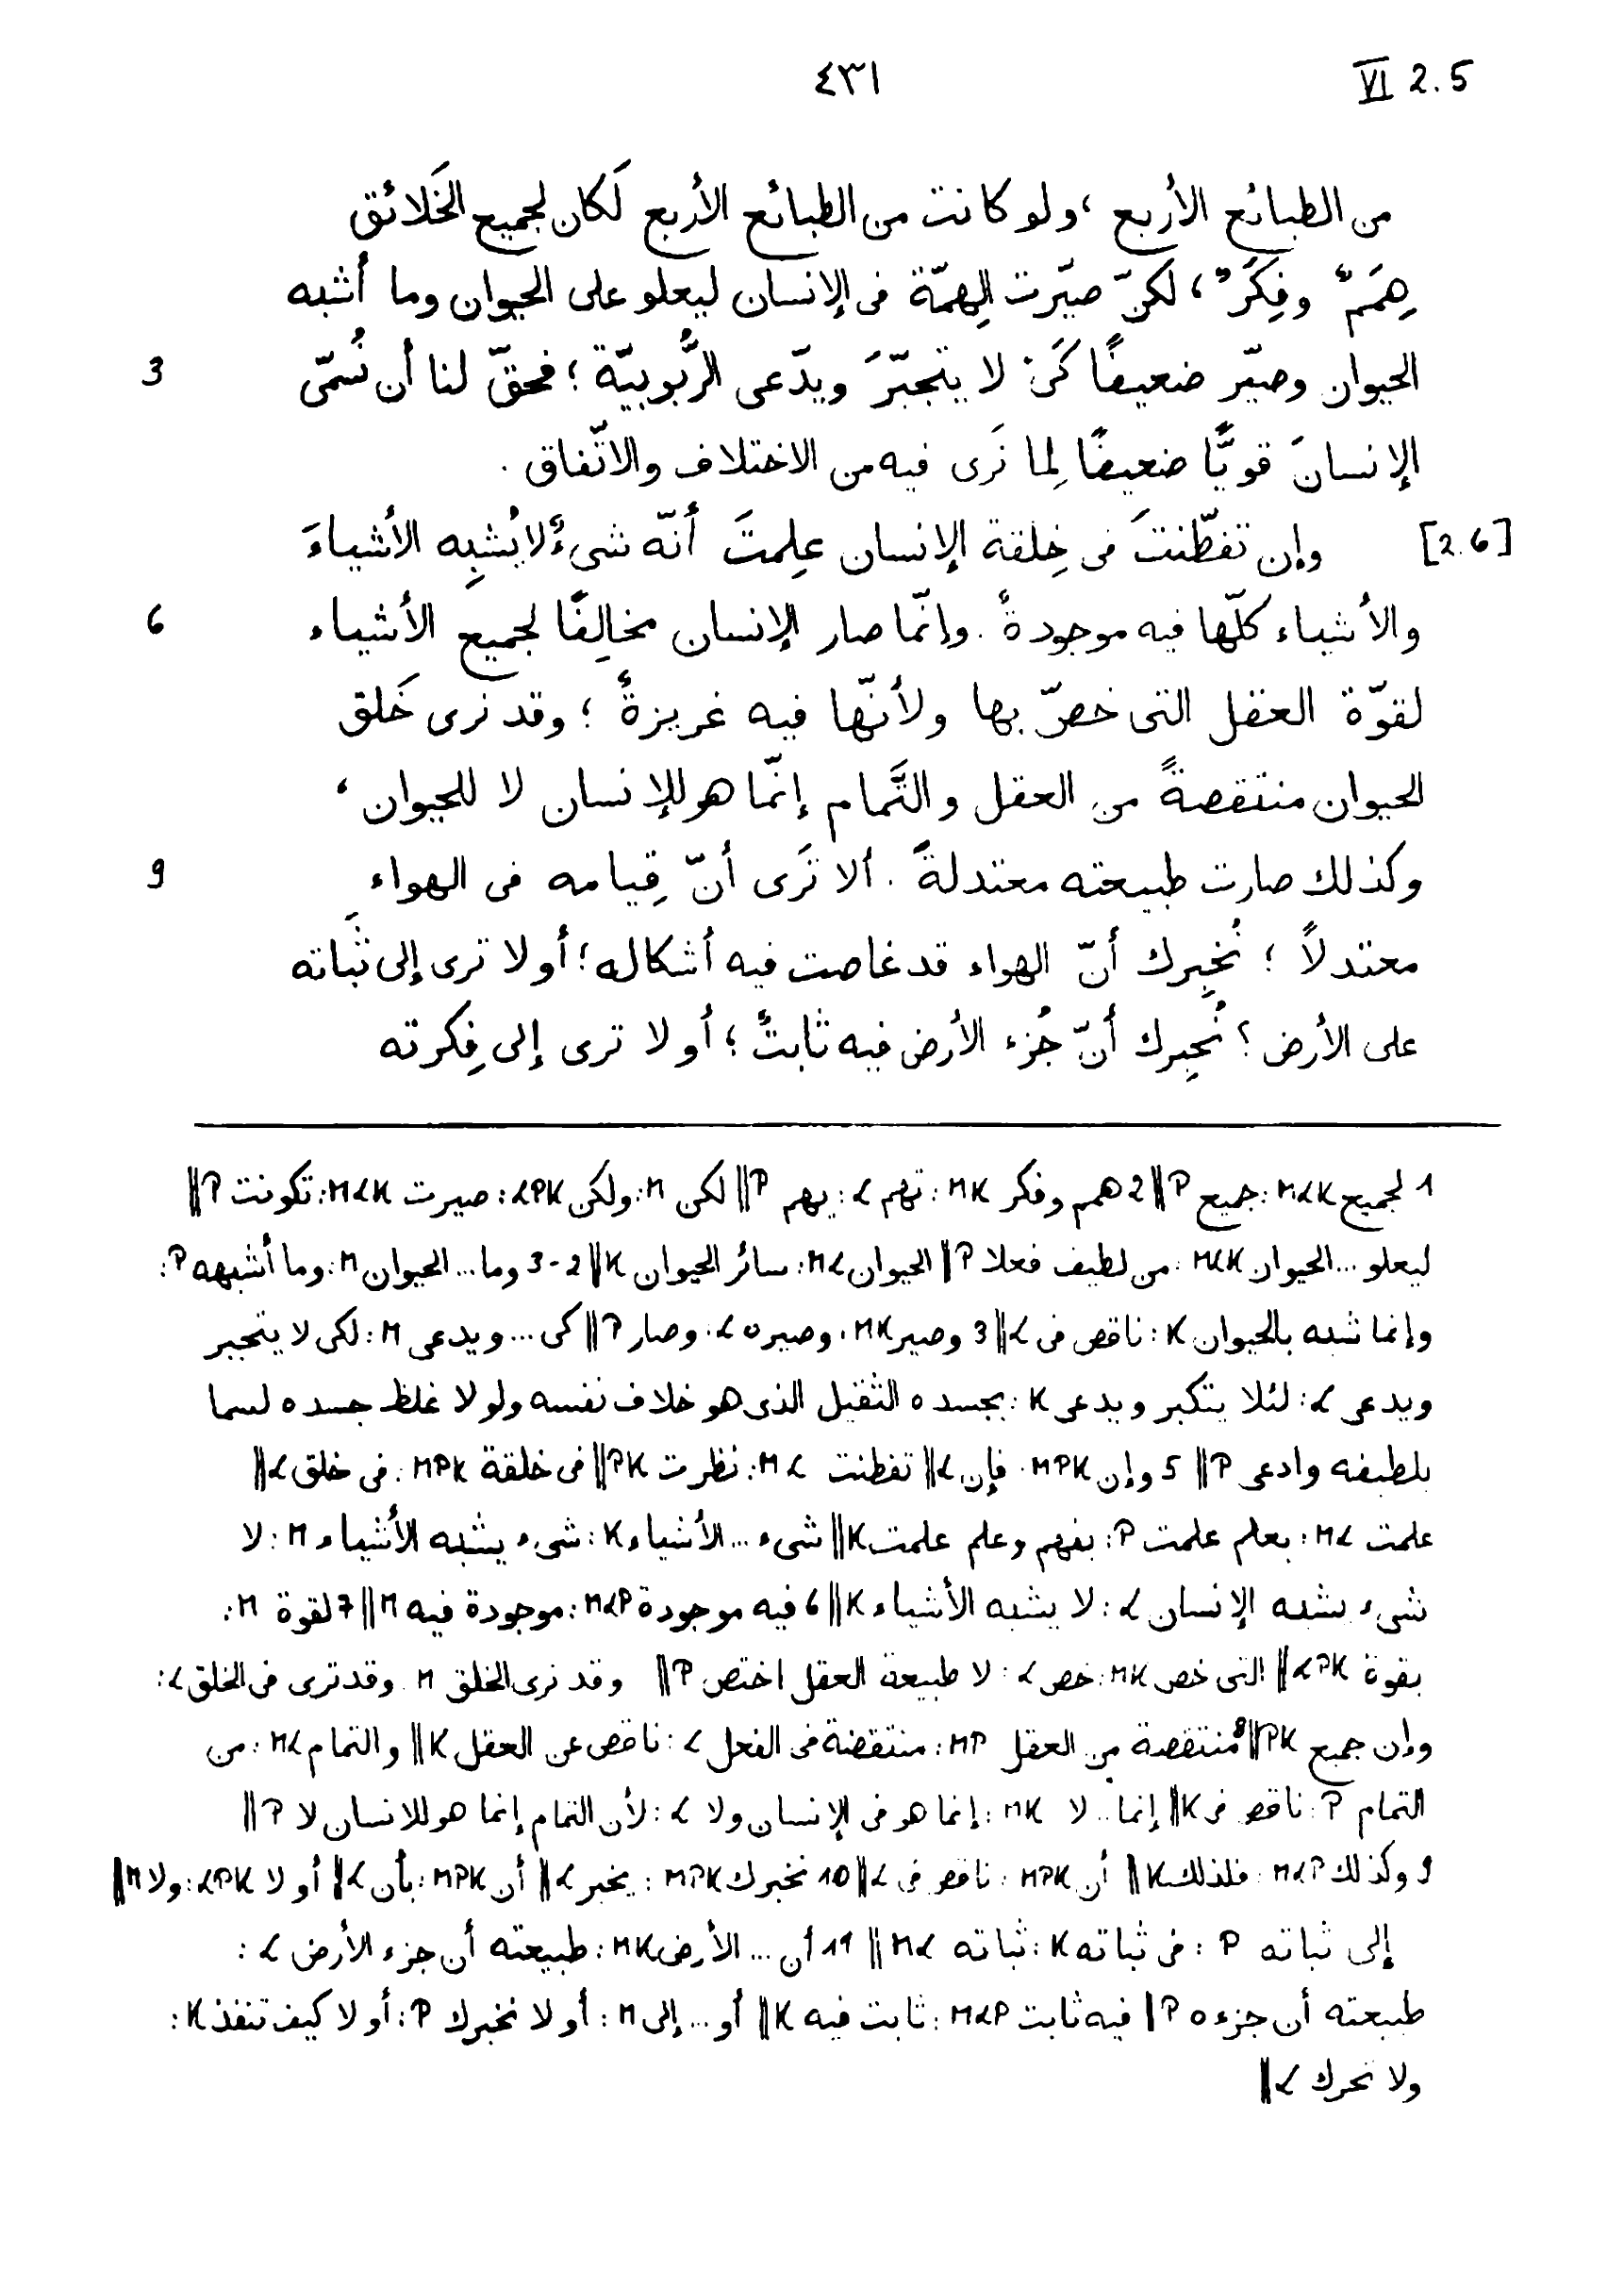 ٤٣١ VI 2.5
من الطبائع الأربع ، ولو كانت من الطبائع الأربع لَكان لجميع الخَلائق
هِمَمٌ وفِكَرٌ ، لكنّ صيّرت الهِمّة فى الإنسان ليعلو على الحيوان وما أشبه
الحيوان وصيّر ضعيفًا كَىْ لا يتجبّرَ ويدّعى الرُّبوبيّة ؛ فحقّ لنا أن نُسمّى 3
الإنسانَ قويًّا ضعيفًا لِما نَرى فيه من الاختلاف والاتّفاق .
[2.6] وإن تفطّنتَ فى خِلقة الإنسان عِلِمتَ أنّه شىءٌ لا يُشبِه الأشياءَ
والأشياء كلّها فيه موجودةٌ . وإنّما صار الإنسان مخالِفًا لجميع الأشياء 6
لقوّة العقل التى خصّ بها ولأنّها فيه غريزةٌ ؛ وقد نرى خَلق
الحيوان منتقصةً من العقل والتَّمام إنّما هو للإنسان لا للحيوان ،
وكذلك صارت طبيعته معتدلةً . ألا تَرى أنّ قِيامه فى الهواء 9
معتدلاً ؛ نُخبِرك أنّ الهواء قد غاصت فيه أشكاله ؛ أولا ترى إلى ثَباته
على الأرض ؟ نُخبِرك أنّ جُزء الأرض فيه ثابتٌ ؛ أولا ترى إلى فِكرته
1 لجميع MLK : جميع P || 2 همم وفكر MK : تهم L : يهم P || لكن M : ولكن LPK : صيرت MLK : تكونت P ||
ليعلو ... الحيوان MLK : من لطيف فعلا P || الحيوان ML : سائر الحيوان K || 2-3 وما ... الحيوان M : وما أشبهه P :
وإنما شبه بالحيوان K : ناقص فى L || 3 وصير MK : وصيره L : وصار P || كى ... ويدعى M : لكى لا يتجبر
ويدعى L : لئلا يتكبر ويدعى K : بجسده الثقيل الذى هو خلاف نفسه ولولا غلظ جسده لسما
بلطيفه وادعى P || 5 وإن MPK : فإن L || تفطنت ML : نظرت PK || فى خلقة MPK : فى خلق L ||
علمت ML : بعلم علمت P : بفهم وعلم علمت K || شىء ... الأشياء K : شىء يشبه الأشياء M : لا
شىء يشبه الإنسان L : لا يشبه الأشياء K || 6 فيه موجودة MLP : موجودة فيه M || 7 لقوة M :
بقوة LPK || التى خص MK : خص L : لا طبيعة العقل اختص P || وقد نرى الخلق M : وقد ترى فى الخلق L :
وإن جميع PK || 8 منتقصة من العقل MP : منتقضة فى الفعل L : ناقص عن العقل K || والتمام ML : من
التمام P : ناقص فى K || إنما ... لا MK : إنما هو فى الإنسان ولا L : لأن التمام إنما هو للانسان لا P ||
9 وكذلك MLP : فلذلك K || أن MPK : ناقص فى L || 10 نخبرك MPK : يخبر L || أن MPK : بأن L || أولا LPK : ولا M ||
إلى ثباته P : فى ثباته K : ثباته ML || 11 أن ... الأرض MK : طبيعته أن جزء الأرض L :
طبيعته أن جزءه P || فيه ثابت MLP : ثابت فيه K || أو ... إلى M : أولا نخبرك P : أولا كيف تنفذ K :
ولا نحرك L ||